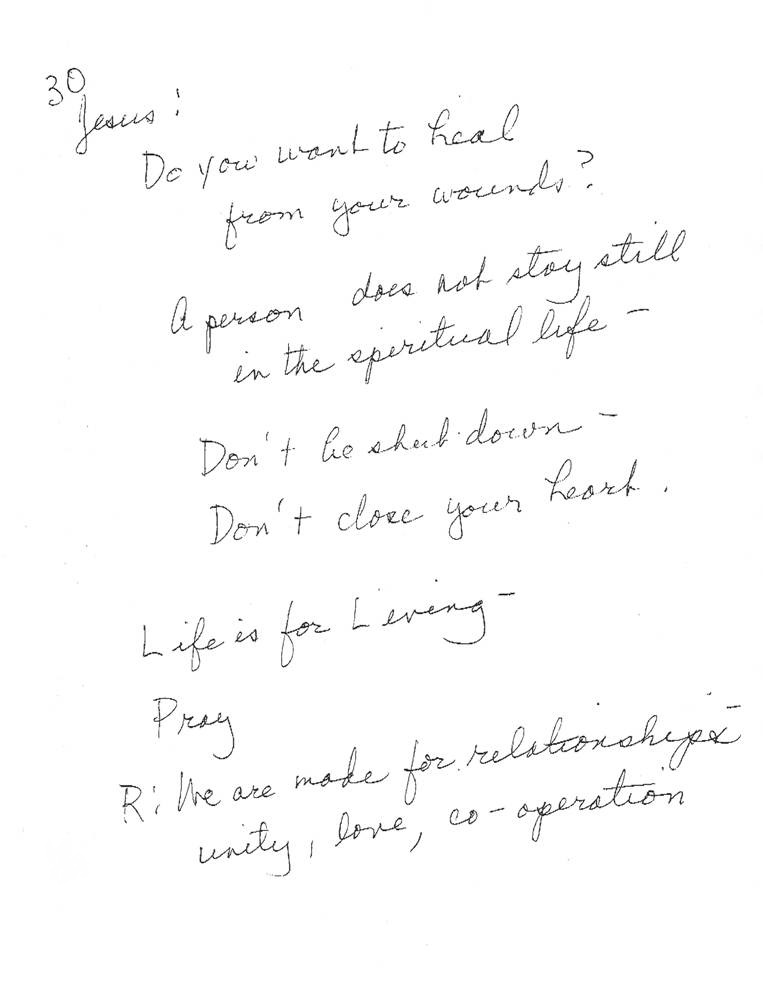 30
Jesus:
Do you want to heal
from your wounds?
A person does not stay still
in the spiritual life -
Don't be shut down -
Don't close your heart.
Life is for Living -
Pray
R: We are made for relationships -
unity, love, co-operation